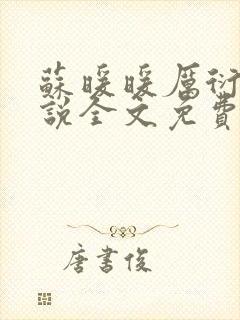 蘇暖暖厲衍
說全文免費
唐書俊